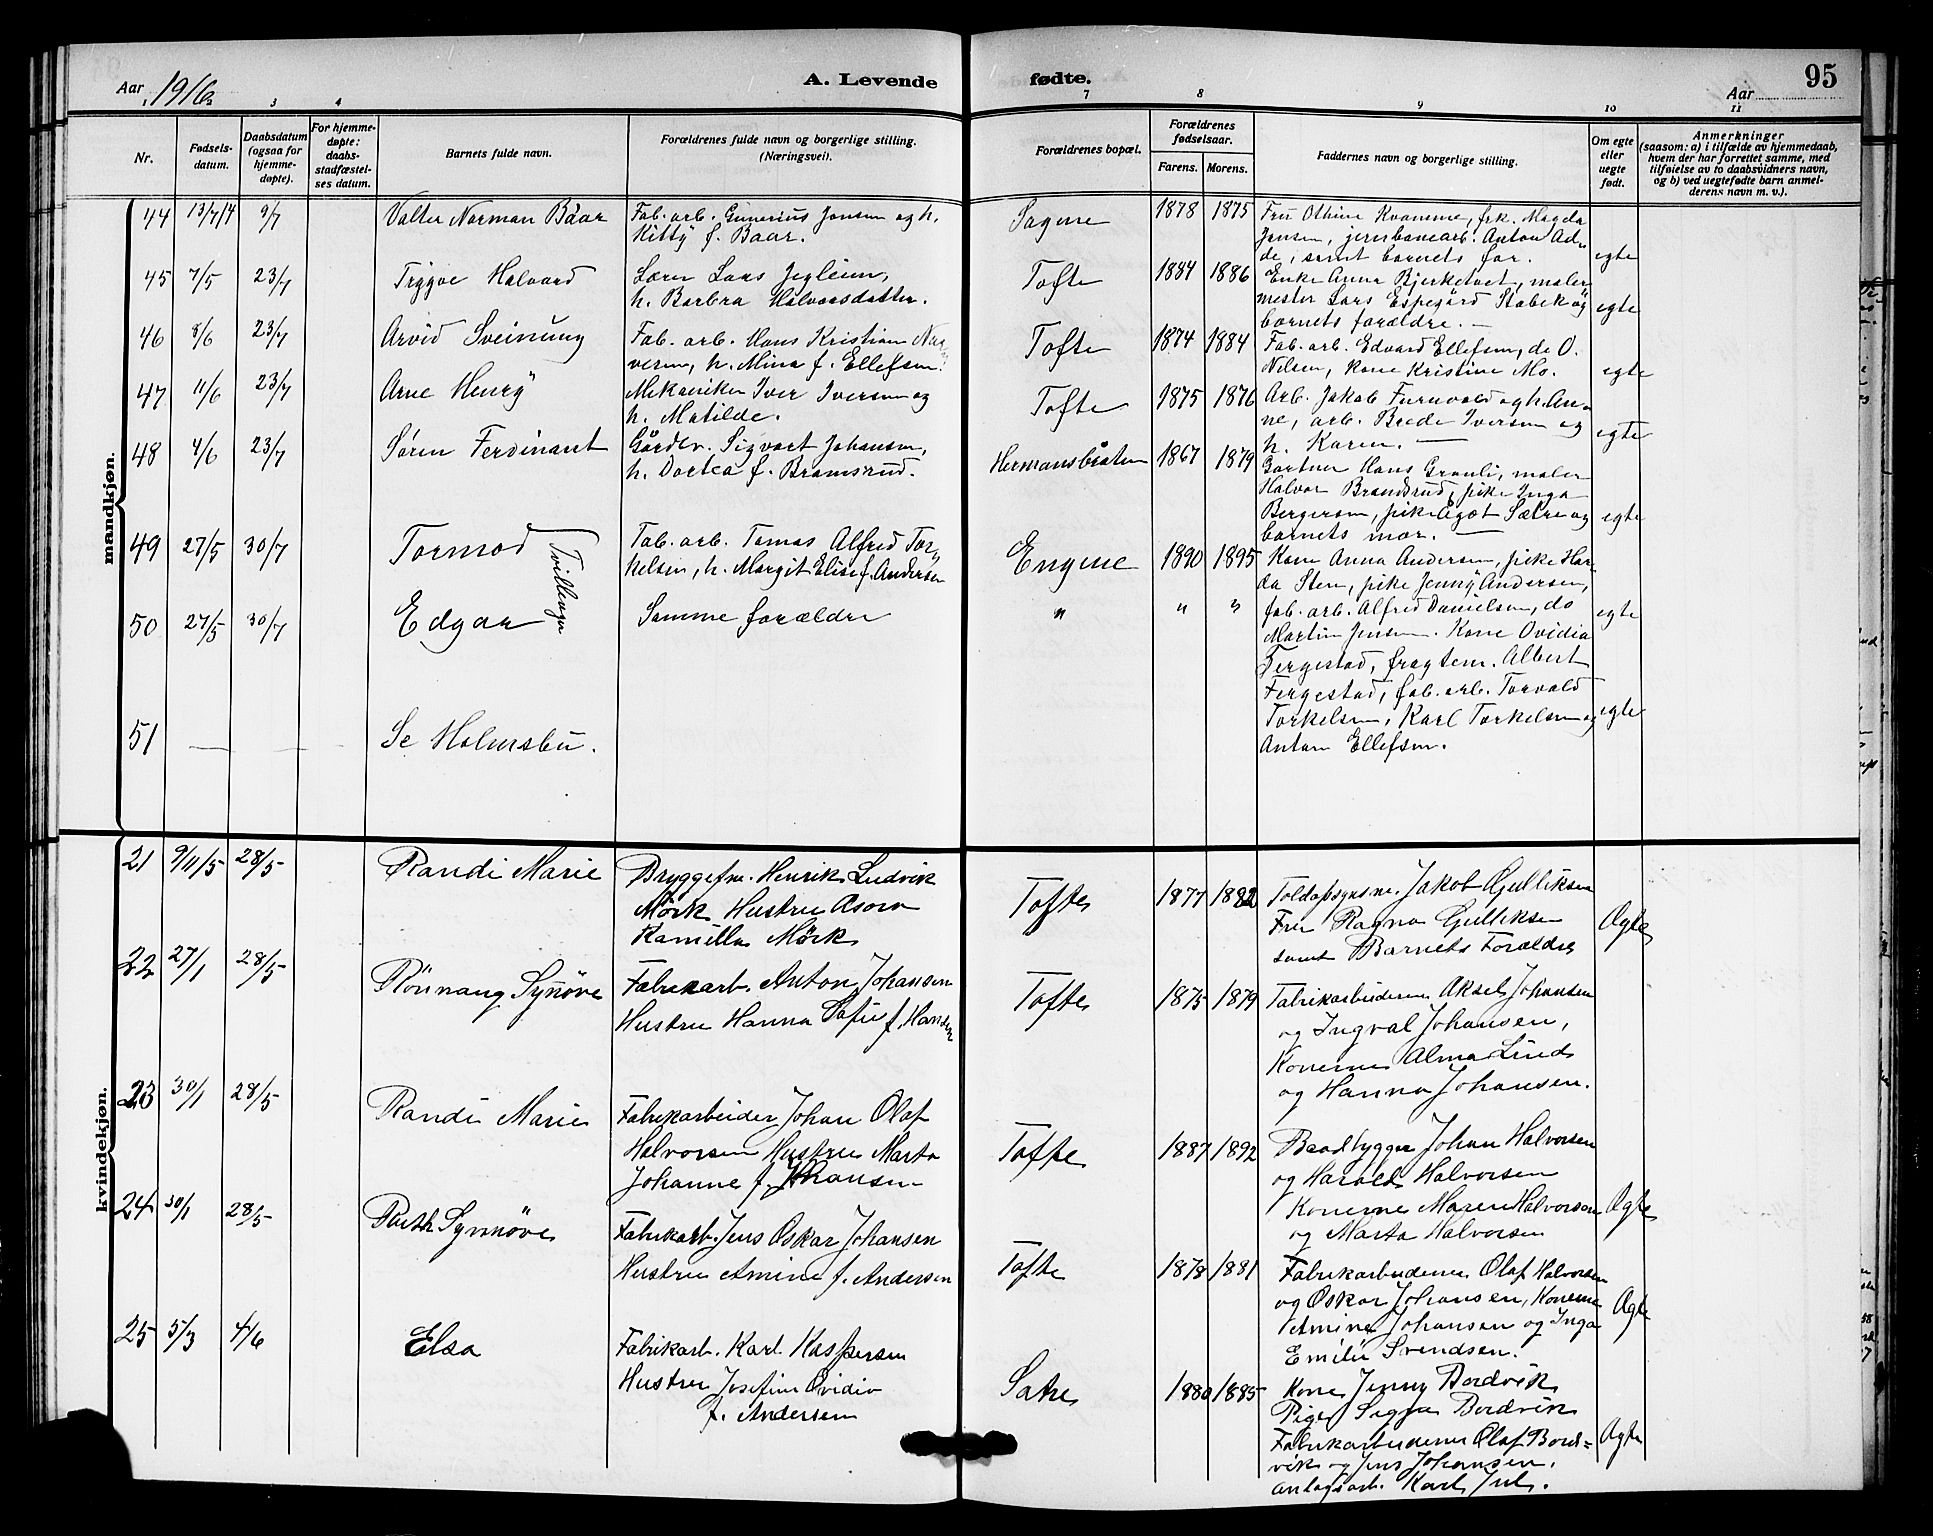 Aar 1916.
A. Levende
fødte.
Aar
95
3
4
7
8
9
10
11
Nr.
Fødsels-
datum.
Daabsdatum
(ogsaa for
hjemme-
døpte).
For hjemme-
døpte:
daabs-
stadfæstel-
ses datum.
Barnets fulde navn.
Forældrenes fulde navn og borgerlige stilling.
(Næringsvei).
Forældrenes bopæl.
Forældrenes
fødselsaar.
Farens.
Morens.
Faddernes navn og borgerlige stilling.
Om egte
eller
uegte
født.
Anmerkninger
(saasom: a) i tilfælde av hjemmedaab,
hvem der har forrettet samme, med
tilføielse av to daabsvidners navn,
og b) ved uegtefødte barn anmel-
derens navn m. v.).
mandkjøn.
44 13/7 14 9/7 Valter Norman Baar
Fab. arb. Gunerius Jensen og h.
Kitty f. Baar.
Sagene 1878 1875
Fru Othine Kvaneme, frk. Magda
Jensen, jernbanearb. Anton And-
de, samt barnets far.
egte
45 7/5 23/7 Trygve Halvard
Lærer Lars Jegleim,
h. Barbra Halvorsdatter.
Tofte 1884 1886
Enke Anna Bjerketvet, maler
mester Lars Espegård Stabek og
barnets forældre. —
egte
46 8/6 23/7 Arvid Sveinung
Fab. arb. Hans Kristian
verm, h. Mina f. Ellefsen.
Tofte 1874 1884
Fab. arb. Edvard Ellefsen, do O.
Nilsen, kone Kristine Mo.
egte
47 11/6 23/7 Arne Henry
Mekaniker Iver Iversen og
h. Matilde.
Tofte 1875 1876
Arb. Jakob Furuvald og h. An-
ne, arb. Brede Iversen og
h. Karen. —
egte
48 4/6 23/7 Søren Ferdinant
Gårdbr. Sigvart Johansen,
h. Dortea f. Bramsrud.
Hermansbråten 1867 1879
Gartner Hans Granli, maler
Halvor Brandsrud, pike Inga
Bergersen, pike Agot Sætre og
barnets mor. —
egte
49 27/5 30/7 Tormod
Tvillinger
Fab. arb. Tomas Alfred Tor-
kelsen, h. Margit Elise f. Andersen
Engene 1890 1895
Kone Anna Andersen, pike Har-
da Sten, pike Jenny Andersen,
fab. arb. Alfred Danielsen, do
Martin Jensen. Kone Ovidia
Fergestad, fragtem. Albert
Fergestad, fab. arb. Torvald
Torkelsen, Karl Torkelsen og
Anton Ellefsen.
egte
50 27/5 30/7 Edgar
Samme forældre
" " "
egte
51 — — Se Holmsbu.
kvindekjøn.
21 9/11 15 28/5 Randi Marie
Bryggefm. Henrik Ludvik
Mørk Hustru Asora
Kamilla Mørk
Tofte 1877 1882
Toldopsynsm. Jakob Gulliksen
Fru Ragna Gulliksen
samt Barnets Forældre
Ægte
22 27/1 28/5 Rönnaug Synøve
Fabrikarb. Anton Johansen
Hustru Hanna Sofie f. Hansen
Tofte 1875 1879
Fabrikarbeiderne Aksel Johansen
og Ingval Johansen,
Konerne Alma Lind
og Hanna Johansen.
23 30/1 28/5 Randi Marie
Fabrikarbeider Johan Olaf
Halvorsen Hustru Marta
Johanne f. Johansen
Tofte 1887 1892
Baadbygger Johan Halvorsen
og Harald Halvorsen
Konerne Maren Halvorsen
og Marta Halvorsen
Ægte
24 30/1 28/5 Ruth Synnöve
Fabrikarb. Jens Oskar Johansen
Hustru Amine f. Andersen
Tofte 1878 1881
Fabrikarbeiderne Olaf Halvorsen
og Oskar Johansen, Konerne
Amine Johansen og Inga
Emilie Svendsen.
Ægte
25 5/3 4/6 Elsa
Fabrikarb. Karl Kaspersen
Hustru Josefine Ovidia
f. Andersen
Sætre 1880 1885
Kone Jenny Bordvik
Pige Signa Bordvik
Fabrikarbeiderne Olaf Bord-
vik og Jens Johansen.
anlægsarb. Karl Jul.
Ægte